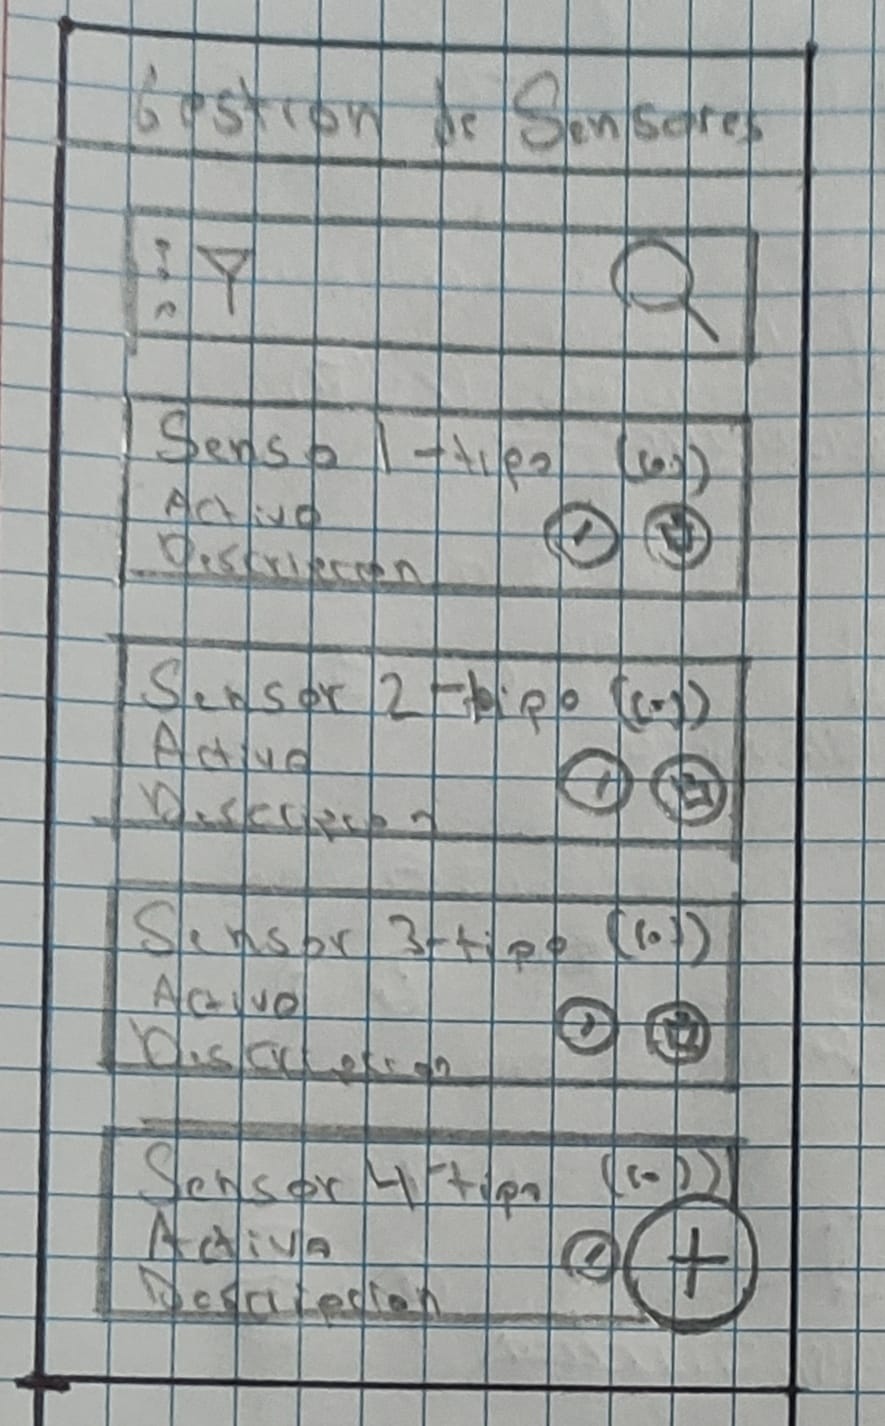 Gestion de Sensores
Senso 1-tipo
Activo
Descripcion
Sensor 2-tipo
Activo
Descripcion
Sensor 3-tipo
Activo
Descripcion
Sensor 4-tipo
Activo
Descripcion